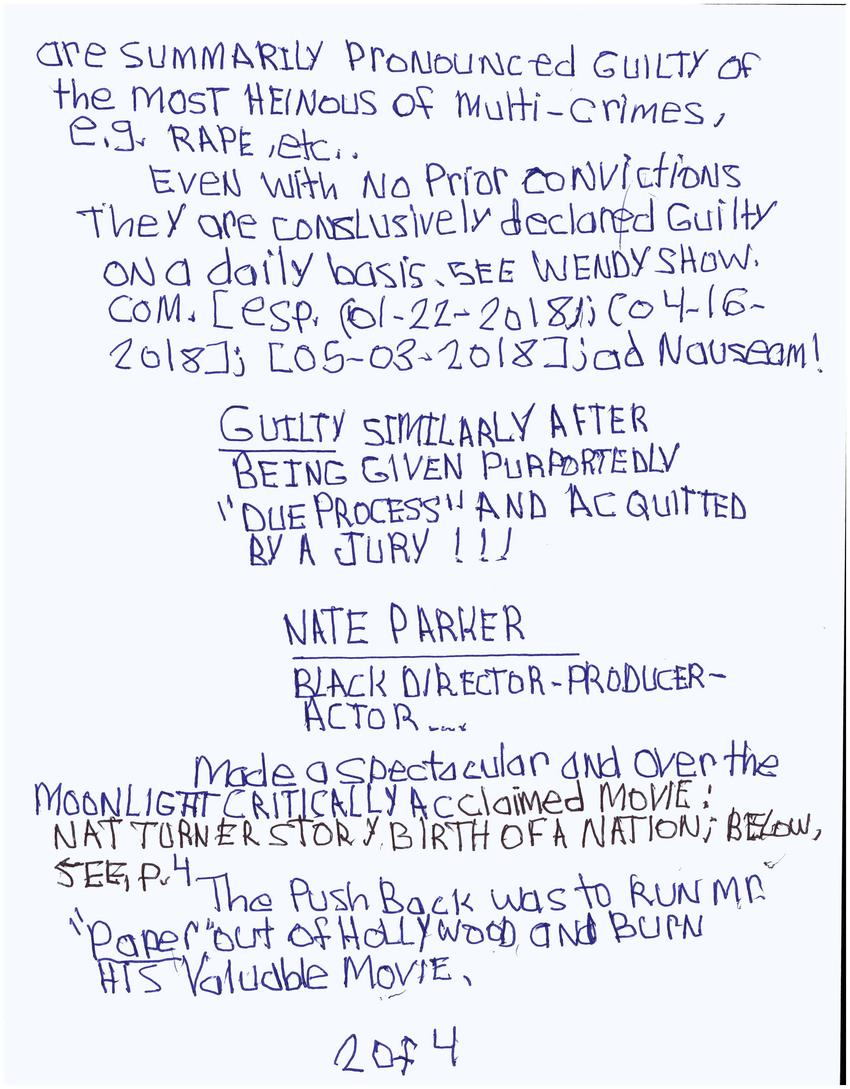 are SUMMARILY PRONOUNCED GUILTY OF
the MOST HEINOUS OF Multi-CRIMES,
e.g. RAPE, etc..
EVEN With NO Prior CONVictIONS
They are CONSLUSively declared Guilty
ON a daily basis. SEE WENDY SHOW.
COM. [esp. (01-22-2018); (04-16-
2018]; [05-03-2018]; ad Nauseam!
GUILTY SIMILARLY AFTER
BEING GIVEN PURPORTEDLY
"DUE PROCESS" AND ACQUITTED
BY A JURY !!!
NATE PARKER
BLACK DIRECTOR-PRODUCER-
ACTOR....
Made a spectacular and over the
MOONLIGHT CRITICALLY ACclaimed MOVIE:
NAT TURNER STORY, BIRTH OF A NATION; BELOW,
SEE, P. 4
The Push Back was to RUN MR.
"Paper" out of HOLLYWOOD, AND BURN
HIS Valudble MOVIE.
2 of 4